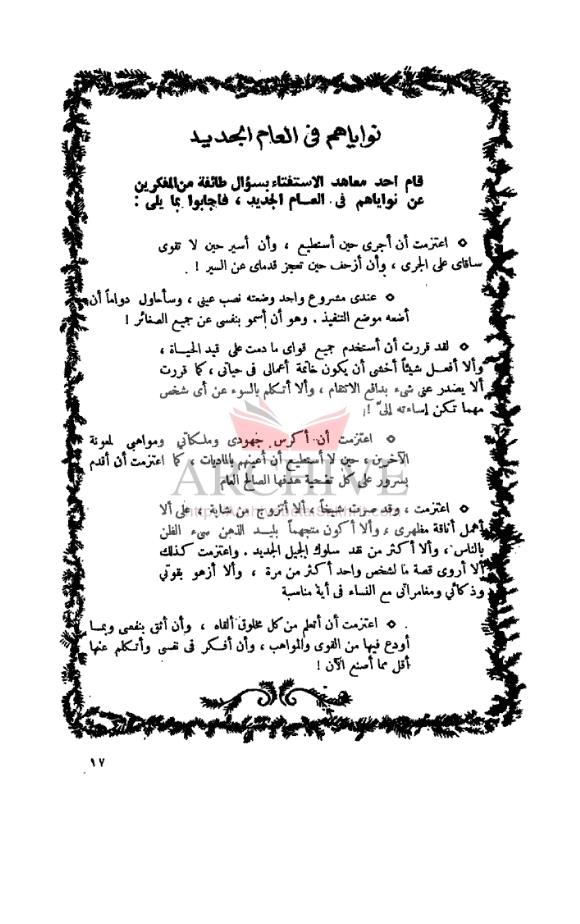 نواياهم فى العام الجديد
قام احد معاهد الاستفتاء بسؤال طائفة من المفكرين
عن نواياهم فى العام الجديد ، فاجابوا بما يلى :
◊ اعتزمت أن أجرى حين أستطيع ، وأن أسير حين لا تقوى
ساقاى على الجرى ، وأن أزحف حين تعجز قدماى عن السير !
◊ عندى مشروع واحد وضعته نصب عينى ، وسأحاول دواماً أن
أضعه موضع التنفيذ . وهو أن أسمو بنفسى عن جميع الصغائر !
◊ لقد قررت أن أستخدم جميع قواى ما دمت على قيد الحياة ،
وألا أفعل شيئاً أخشى أن يكون خاتمة أعمالى فى حياتى ، كما قررت
ألا يصدر عنى شىء بدافع الانتقام ، وألا أتكلم بالسوء عن أى شخص
مهما تكن إساءته إلىّ !
◊ اعتزمت أن أكرس جهودى وملكاتي ومواهبى لمعونة
الآخرين ، حين لا أستطيع أن أعينهم بالماديات ، كما اعتزمت أن أقدم
بسرور على كل تضحية هدفها الصالح العام
ARCHIVE
◊ اعتزمت ، وقد صرت شيخاً ، ألا أتزوج من شابة ، على ألا
أهمل أناقة مظهرى ، وألا أكون متجهماً بليد الذهن سىء الظن
بالناس ، وألا أكثر من نقد سلوك الجيل الجديد . واعتزمت كذلك
ألا أروى قصة ما لشخص واحد أكثر من مرة ، وألا أزهو بقوتي
وذكائي ومغامراتى مع النساء فى أية مناسبة
◊ اعتزمت أن أتعلم من كل مخلوق ألقاه ، وأن أثق بنفسى وبما
أودع فيها من القوى والمواهب ، وأن أفكر فى نفسى وأتكلم عنها
أقل مما أصنع الآن !
١٧